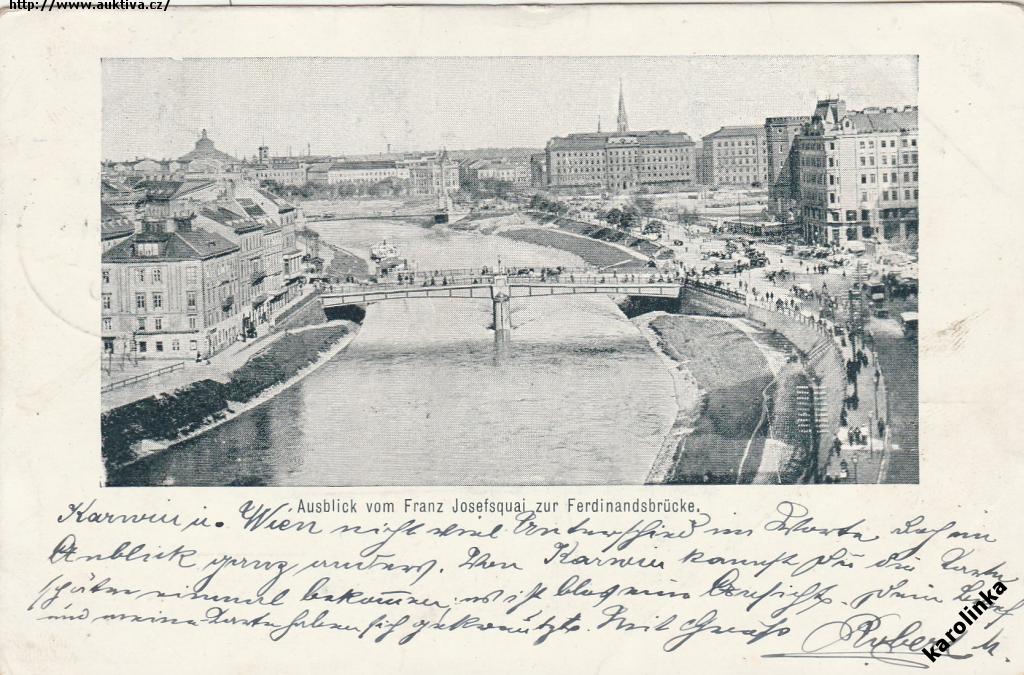 http://www.auktiva.cz/
Ausblick vom Franz Josefsquai zur Ferdinandsbrücke.
Karwin u. Wien nicht viel Unterschied im Worte, doch im
Anblick ganz anders. Von Karwin kannst Du die Karte
später einmal bekommen, es ist blos eine Ansicht. Dein Brief
und meine Karte haben sich gekreuzt. Mit Gruss Robert
karolinka